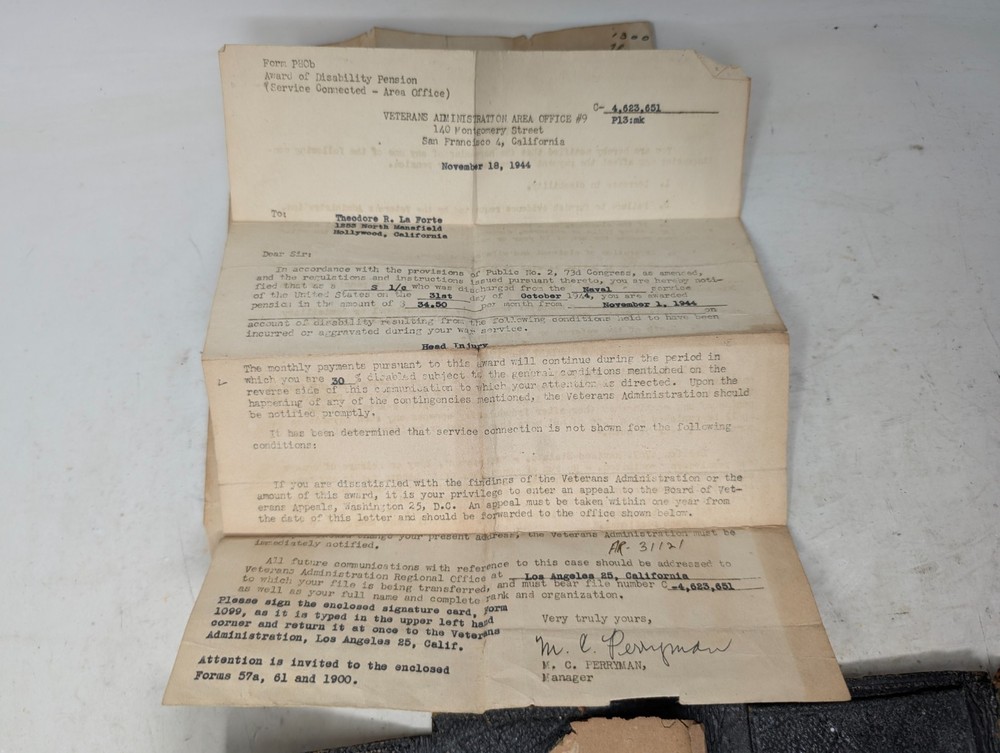 Form P80b
Award of Disability Pension
(Service Connected - Area Office)
C- 4,623,651
VETERANS ADMINISTRATION AREA OFFICE #9
P13:mk
140 Montgomery Street
San Francisco 4, California
November 18, 1944
To:
Theodore R. La Forte
North Mansfield
Hollywood, California
Dear Sir:
In accordance with the provisions of Public No. 2, 73d Congress, as amended,
and the regulations and instructions issued pursuant thereto, you are hereby noti-
fied that as a S 1/c who was discharged from the Naval service
of the United States on the 31st day of October 1944, you are awarded
pension in the amount of $ 34.50 per month from November 1, 1944
on
account of disability resulting from the following conditions held to have been
incurred or aggravated during your war service.
Head Injury
The monthly payments pursuant to this award will continue during the period in
which you are 30 % disabled subject to the general conditions mentioned on the
reverse side of this communication to which your attention is directed. Upon the
happening of any of the contingencies mentioned, the Veterans Administration should
be notified promptly.
It has been determined that service connection is not shown for the following
conditions:
If you are dissatisfied with the findings of the Veterans Administration or the
amount of this award, it is your privilege to enter an appeal to the Board of Vet-
erans Appeals, Washington 25, D.C. An appeal must be taken within one year from
the date of this letter and should be forwarded to the office shown below.
change your present address, the Veterans Administration must be
immediately notified.
31121
All future communications with reference to this case should be addressed to
Veterans Administration Regional Office at Los Angeles 25, California
to which your file is being transferred, and must bear file number C -4,623,651
as well as your full name and complete rank and organization.
Please sign the enclosed signature card, Form
1099, as it is typed in the upper left hand
corner and return it at once to the Veterans
Administration, Los Angeles 25, Calif.
Very truly yours,
M. C. Perryman
M. C. PERRYMAN,
Manager
Attention is invited to the enclosed
Forms 57a, 61 and 1900.